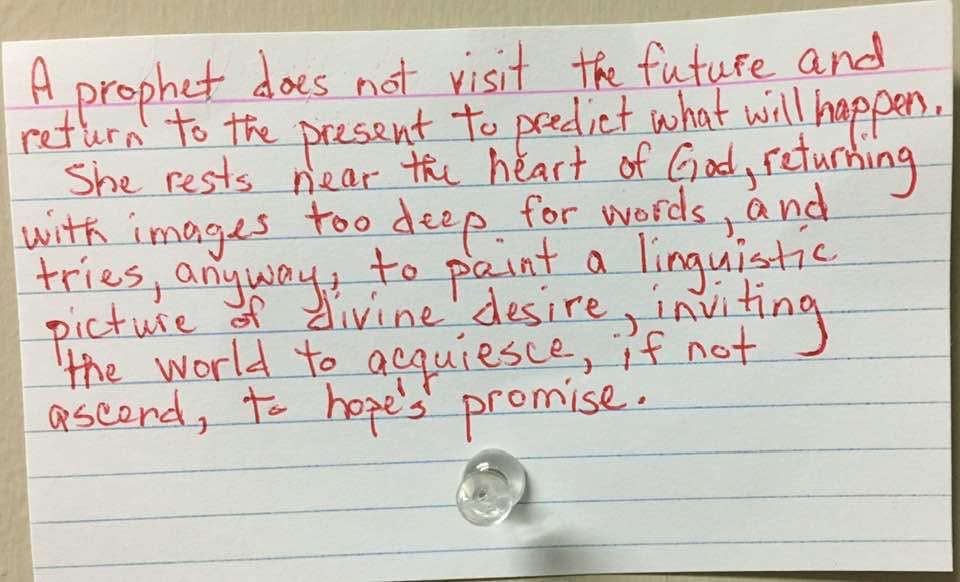 A prophet does not visit the future and
return to the present to predict what will happen.
She rests near the heart of God, returning
with images too deep for words, and
tries, anyway, to paint a linguistic
picture of divine desire, inviting
the world to acquiesce, if not
ascend, to hope's promise.